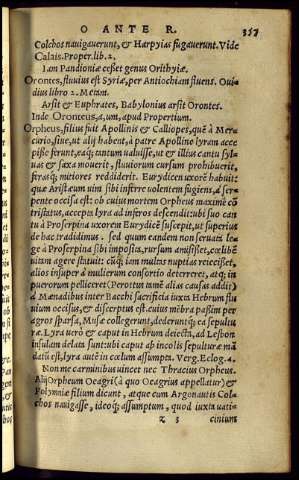 O ANTE R. 357
Colchos nauigauerunt, & Harpyias fugauerunt. Vide
Calais. Proper. lib. 2.
Iam Pandioniæ cesset genus Orithyiæ.
Orontes, fluuius est Syriæ, per Antiochiam fluens. Oui-
dius libro 2. Metam.
Arsit & Euphrates, Babylonius arsit Orontes.
Inde Oronteus, a, um, apud Propertium.
Orpheus, filius fuit Apollinis & Calliopes, quē à Mer-
curio, siue, ut alij habent, à patre Apolline lyram acce
pisse ferūt, eaq́; tantum ualuisse, ut & illius cantu syl-
uas & saxa mouerit, fluuiorum cursum prohibuerit,
ferasq́; mitiores reddiderit. Eurydicen uxorē habuit:
quæ Aristæum uim sibi inferre uolentem fugiens, à ser-
pente occisa est: ob cuius mortem Orpheus maximè cō
tristatus, accepta lyra ad inferos descendit: ubi suo can
tu à Proserpina uxorem Eurydicē suscepit, ut superius
de hac tradidimus. sed quum eandem non seruata le
ge à Proserpina sibi imposita, rursum amisisset, cœlibē
uitam agere statuit: cūq́; iam multas nuptias reiecisset,
alios insuper à mulierum consortio deterreret, atq; in
puerorum pelliceret (Perottus tamē alias causas addit)
à Mænadibus inter Bacchi sacrificia iuxta Hebrum flu
uium occisus, & discerptus est. cuius mēbra passim per
agros sparsa, Musæ collegerunt, dederuntq́; ea sepultu
ræ. Lyra uerò & caput in Hebrum deiecta, ad Lesbon
insulam delata sunt: ubi caput ab incolis sepulturæ mā
datū est, lyra autē in cœlum assumpta. Verg. Eclog. 4.
Non me carminibus uincet nec Thracius Orpheus.
Alij Orpheum Oeagri (à quo Oeagrius appellatur) &
Polymniæ filium dicunt, atque cum Argonautis Col-
chos nauigasse, ideoq́; assumptum, quod iuxta uati-
z 3 cinium